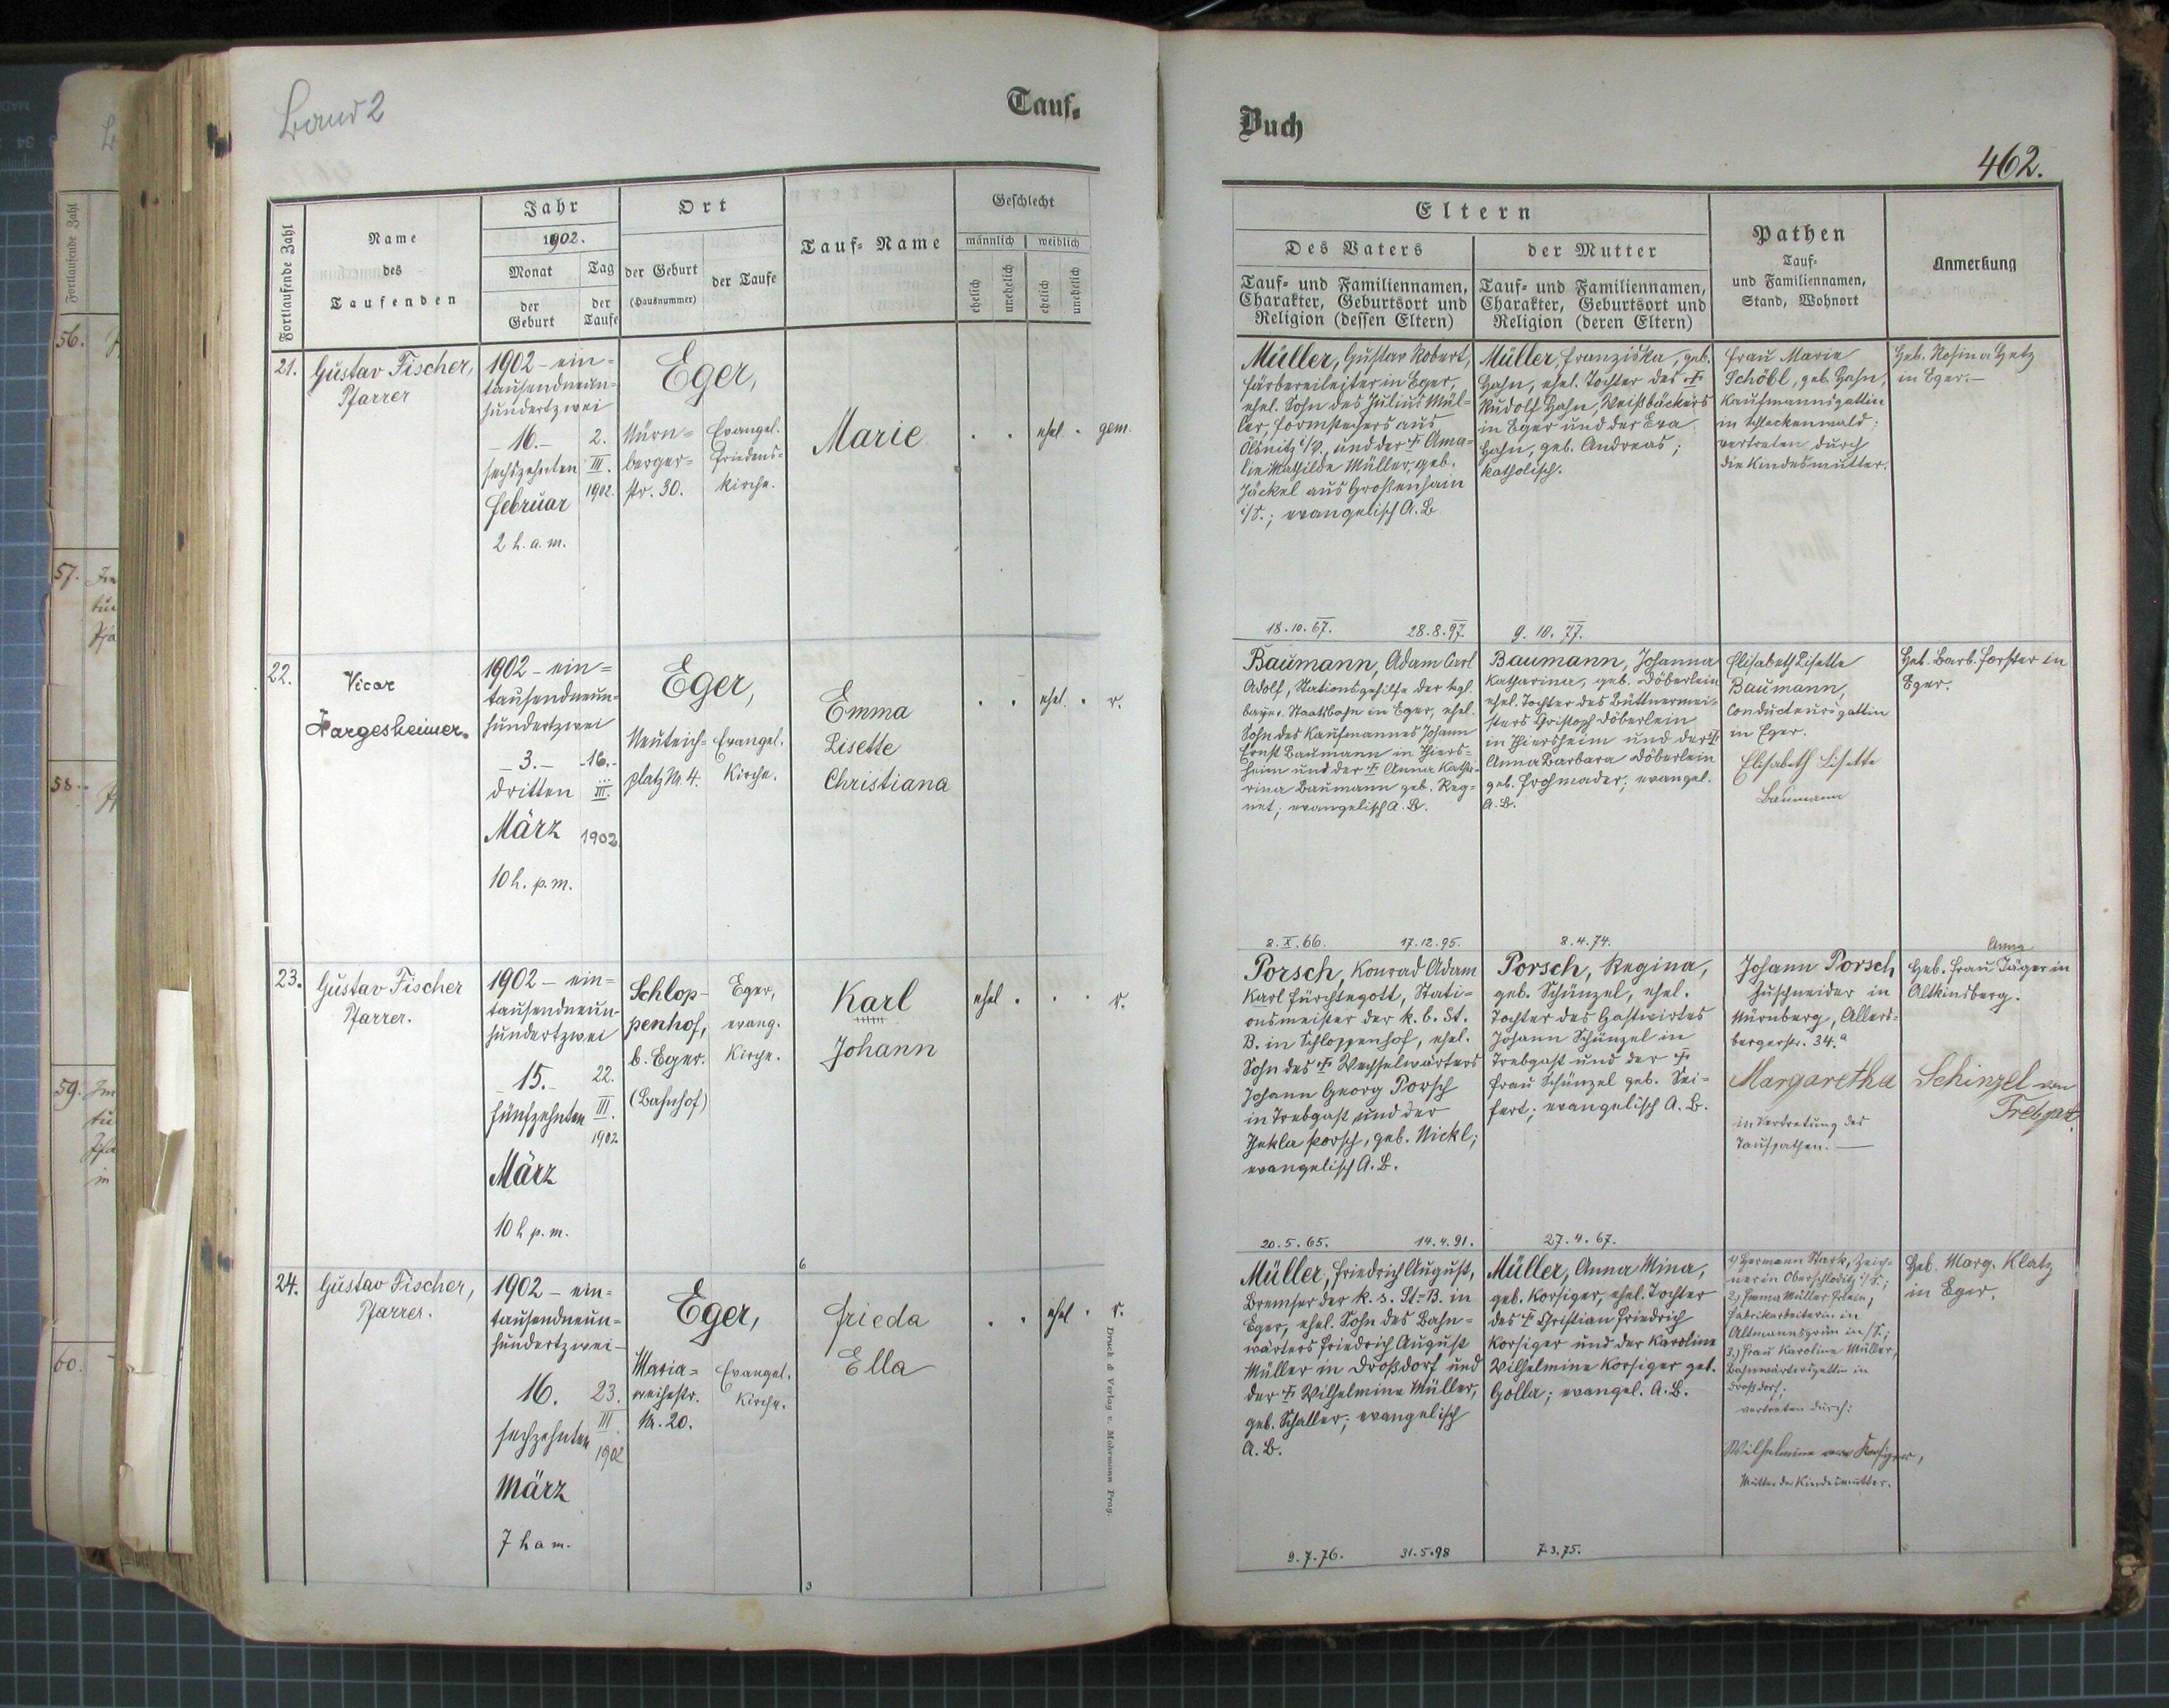 Band 2
Tauf-
Fortlaufende Zahl
Name
des
Taufenden
Jahr
1902.
Monat
der
Geburt
Tag
der
Taufe
Ort
der Geburt
(Hausnummer)
der Taufe
Tauf-Name
Geschlecht
männlich
weiblich
ehelich
unehelich
ehelich
unehelich
21.
Gustav Fischer,
Pfarrer
1902 - ein=
tausendneun=
hundertzwei
- 16. -
sechszehnten
Februar
2 h. a. m.
2.
III.
1902.
Eger,
Nürn=
berger=
str. 30.
Evangel.
Friedens=
kirche.
Marie
ehel.
gem.
22.
Vicar
Hargesheimer.
1902 - ein=
tausendneun=
hundertzwei
- 3. -
dritten
März
10 h. p. m.
- 16. -
III.
1902
Eger,
Neuteich=
platz Nr. 4.
Evangel.
Kirche.
Emma
Lisette
Christiana
ehel.
r.
23.
Gustav Fischer
Pfarrer.
1902 - ein=
tausendneun=
hundertzwei
15.
fünfzehnten
März
10 h p. m.
22.
III.
1902
Schlop-
penhof,
b. Eger.
(Bahnhof)
Eger,
evang.
Kirche.
Karl
Johann
ehel.
r.
24.
Gustav Fischer,
Pfarrer.
1902 - ein=
tausendneun=
hundertzwei -
16.
sechzehnten
März
7 h a m.
23.
III
1902
Eger,
Maria=
weihestr.
Nr. 20.
Evangel.
Kirche.
Frieda
Ella
ehel.
r.
Druck & Verlag v. Mohrmann Prag.
Buch
462.
Eltern
Des Vaters
Tauf- und Familiennamen,
Charakter, Geburtsort und
Religion (dessen Eltern)
der Mutter
Tauf- und Familiennamen,
Charakter, Geburtsort und
Religion (deren Eltern)
Pathen
Tauf-
und Familiennamen,
Stand, Wohnort
Anmerkung
Müller, Gustav Robert,
Färbereileiter in Eger,
ehel. Sohn des Julius Mül=
ler, Formstechers aus
Ölsnitz i/V., und der † Ama=
lie Mathilde Müller, geb.
Jäckel aus Großenhain
i/S.; evangelisch A. B
18. 10. 67.
28. 8. 97.
Müller, Franziska, geb.
Hahn, ehel. Tochter des †
Rudolf Hahn, Weißbäckers
in Eger und der Eva
Hahn, geb. Andreas;
katholisch.
9. 10. 77.
Frau Marie
Schöbl, geb. Hahn,
Kaufmannsgattin
in Schlackenwald;
vertreten durch
die Kindesmutter.
Heb. Rosina Hetz
in Eger. -
Baumann, Adam Carl
Adolf, Stationsgehilfe der kgl.
bayer. Staatsbahn in Eger, ehel.
Sohn des Kaufmannes Johann
Ernst Baumann in Thiers=
heim und der † Anna Katha=
rina Baumann geb. Reg=
net; evangelisch A. B.
2. X. 66.
17. 12. 95.
Baumann, Johanna
Katharina, geb. Döberlein
ehel. Tochter des Büttnermei=
sters Christoph Döberlein
in Thiersheim und der †
Anna Barbara Döberlein
geb. Prohmader; evangel.
A. B.
8. 4. 74.
Elisabeth Lisette
Baumann,
Conducteursgattin
in Eger.
Elisabeth Lisette
Baumann
Heb. Barb. Forster in
Eger.
Porsch, Konrad Adam
Karl Fürchtegott, Stati=
onsmeister der k. b. St.
B. in Schloppenhof, ehel.
Sohn des † Wechselwärters
Johann Georg Porsch
in Trebgast und der
Thekla Porsch, geb. Nickl;
evangelisch A. B.
20. 5. 65.
14. 4. 91.
Porsch, Regina,
geb. Schünzel, ehel.
Tochter des Gastwirtes
Johann Schünzel in
Trebgast und der †
Frau Schünzel geb. Sei=
fert; evangelisch A. B.
27. 4. 67.
Johann Porsch
Zuschneider in
Nürnberg, Allers=
bergerstr. 34.a
Margaretha Schinzel von
Trebgast
in Vertretung des
Taufpathen. -
Anna
Heb. Frau Jäger in
Altkinsberg.
Müller, Friedrich August,
Bremser der k. s. St=B. in
Eger, ehel. Sohn des Bahn=
wärters Friedrich August
Müller in Droßdorf und
der † Wilhelmine Müller,
geb. Schaller; evangelisch
A. B.
9. 7. 76.
31. 5. 98
Müller, Anna Mina,
geb. Korsiger, ehel. Tochter
des † Christian Friedrich
Korsiger und der Karoline
Wilhelmine Korsiger geb.
Golla; evangel. A. B.
7. 3. 75.
1) Hermann Stark, Zeich=
ner in Oberschloditz i/S.;
2.) Emma Müller Frlein,
Fabrikarbeiterin in
Altmannsgrün in/S.;
3.) Frau Karoline Müller,
Bahnwärtersgattin in
Droßdorf;
vertreten durch:
Wilhelmine Korsiger,
Mutter der Kindesmutter.
Heb. Marg. Klatz
in Eger.
56.
57.
58.
59.
60.